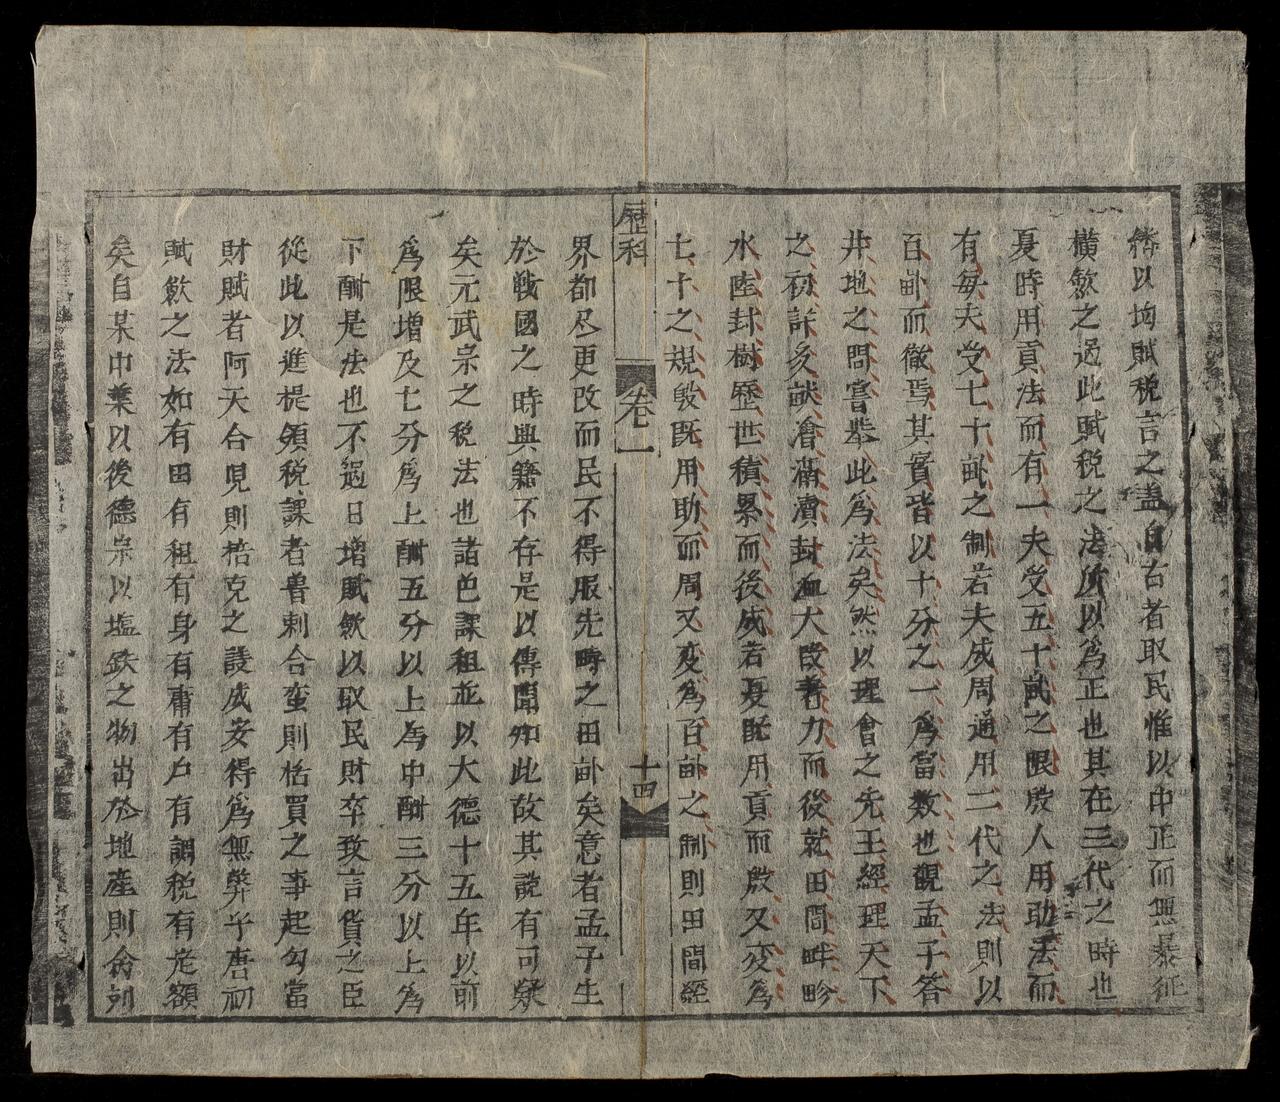 以均賦税言之盖自古者取民惟以中正而無暴征
橫歛之過此賦税之法所以爲正也其在三代之時也
夏時用貢法而有一夫受五十畝之限殷人用助法而
有每夫受七十畝之制若夫成周通用二代之法則以
百畝而徹焉其實皆以十分之一爲當数也觀孟子答
井地之問嘗舉此爲法矣然以理會之先王經理天下
之初許多畎澮溝瀆封洫大段着力而後就田間畔畛
水陸封樹歷世積累而後成若夏既用貢而殷又変爲
七十之規殷既用助而周又変爲百畝之制則田間經
歷科 卷一 十四
界都尽更改而民不得服先時之田畝矣意者孟子生
於戦國之時典籍不存是以傳聞如此故其說有可疑
矣元武宗之税法也諸色課租並以大德十五年以前
爲限增及七分爲上酬五分以上為中酬三分以上爲
下酬是法也不過日增賦歛以取民財卒致言貨之臣
從此以進提領税課者魯剌合蛮則括買之事起勾當
財賦者阿夭合児則掊克之議成安得爲無弊乎唐初
賦歛之法如有田有租有身有庸有户有調税有定額
矣自某中葉以後德宗以塩鉄之物出於地產則命列